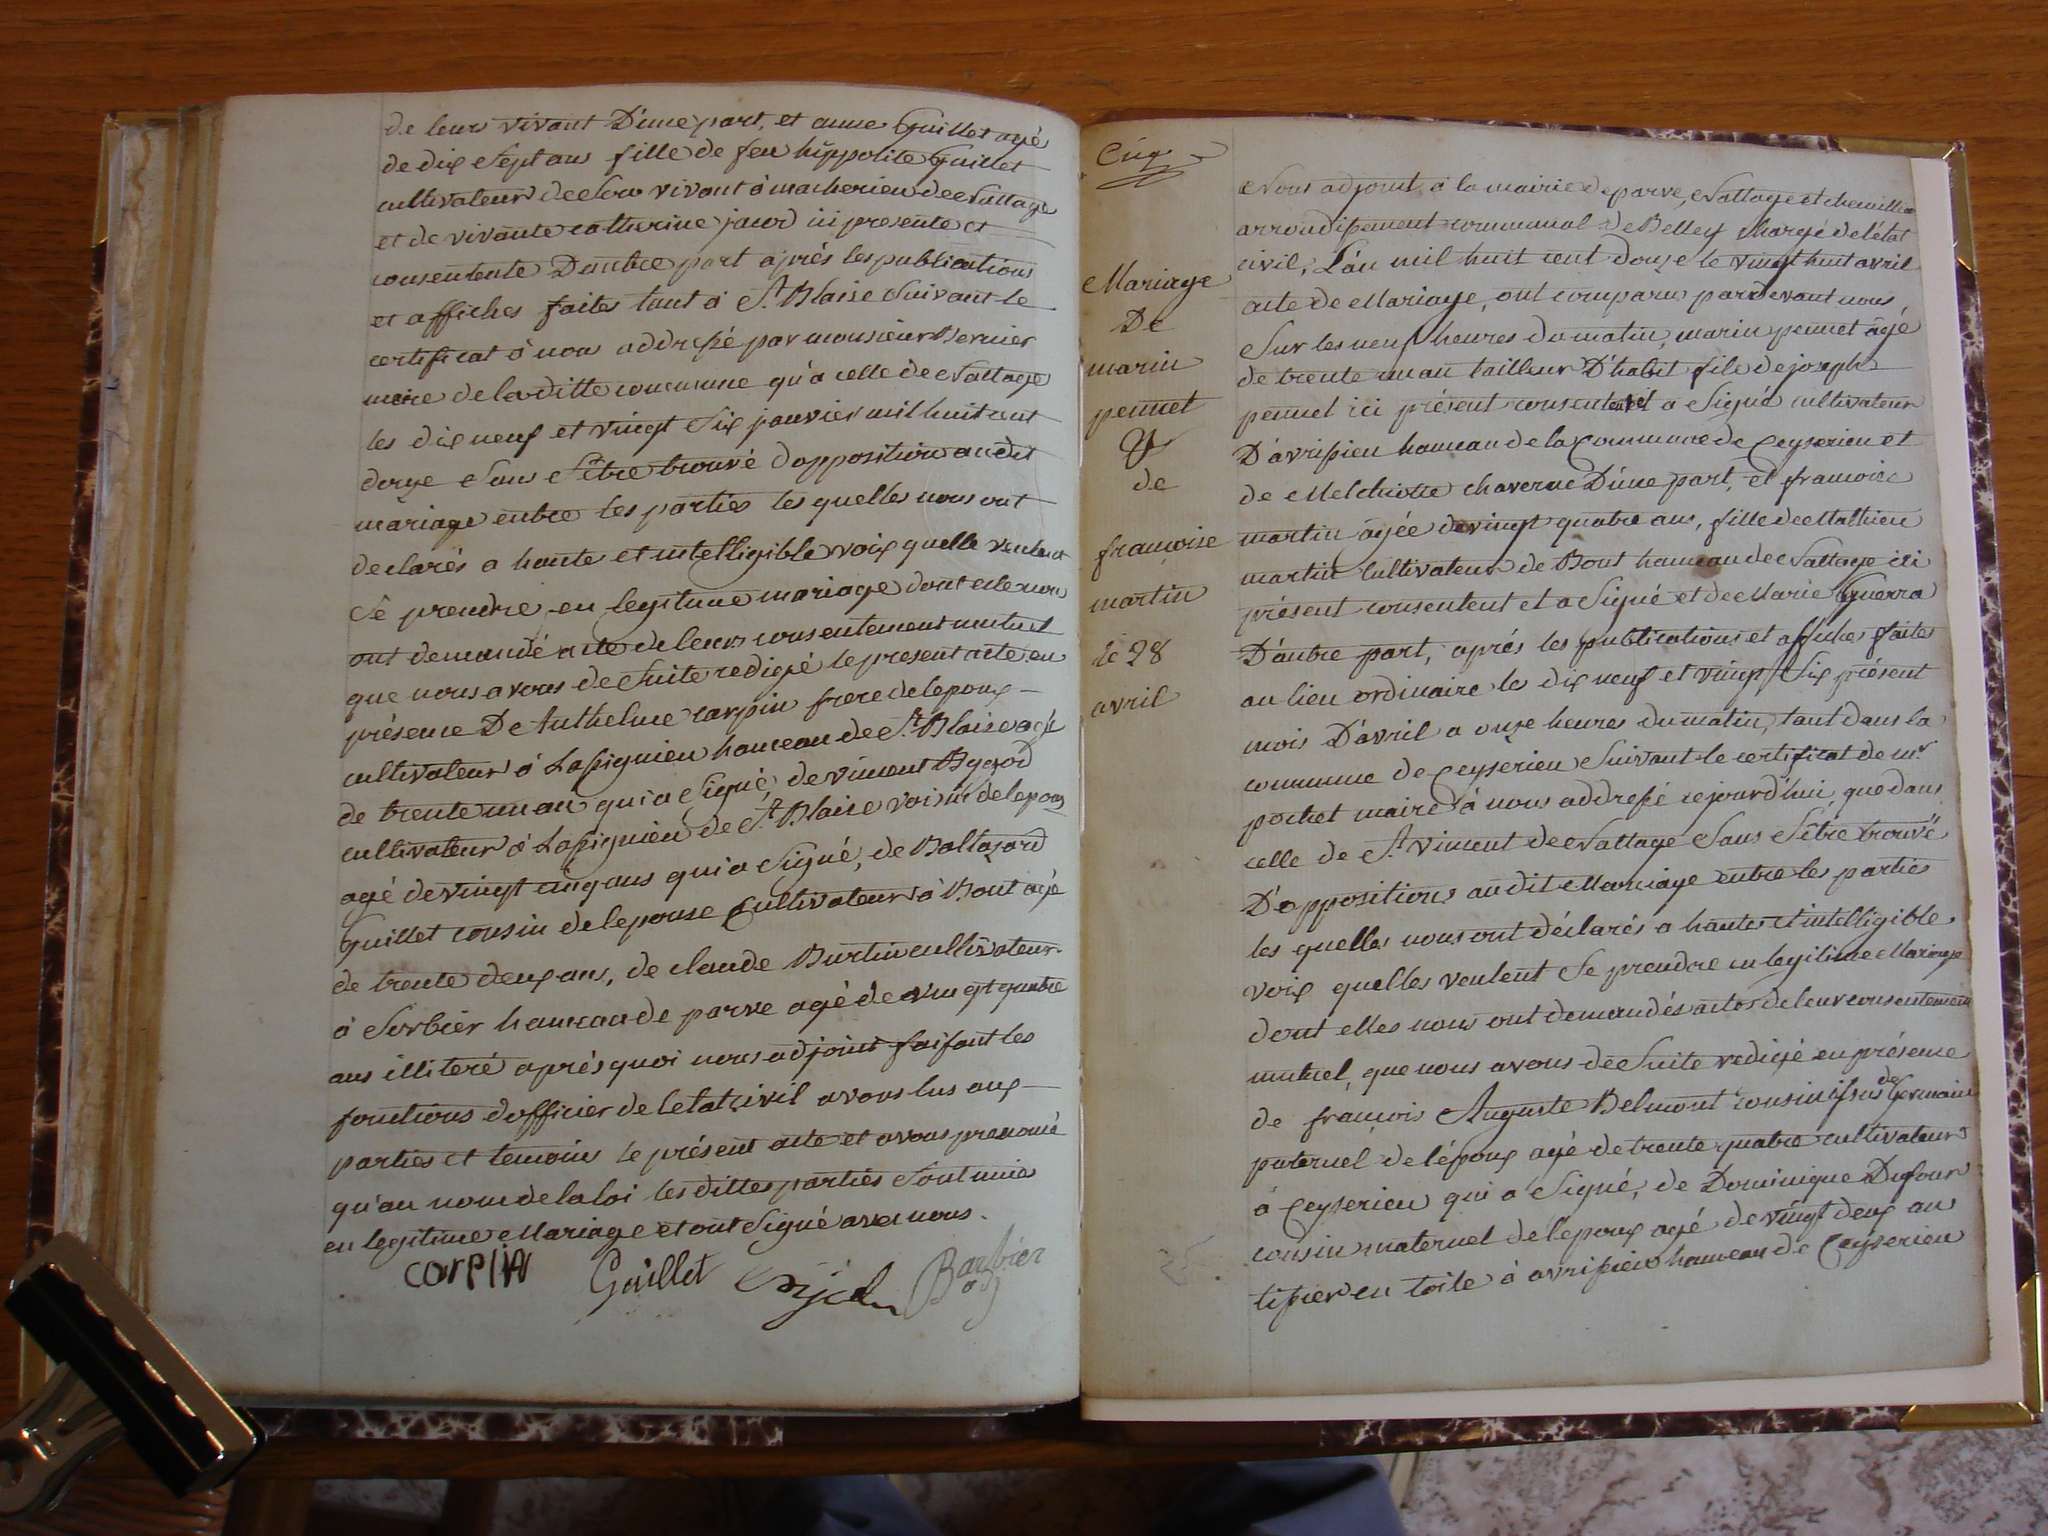 de leurs vivant D'une part, et anne Guillet agé
de dix Sept ans fille de feu hippolite Guillet
cultivateur de Son vivant à macherieu de Nattage
et de vivante catherine jacod ici presente et
consentente D'autre part après les publications
et affiches faites tant à St Blaise Suivant le
certificat à nous addressé par monsieur Bernier
maire de la ditte commune qu'a celle de Nattage
les dix neuf et vingt Six janvier mil huit cent
douze Sans S'être trouvé d'opposition au dit
mariage entre les parties les quelles nous ont
declarés a haute et intelligible voix quelle veulent
Se prendre en legitime mariage dont elle nous
ont demandé acte de leurs consentement mutuel
que nous avons de Suite redigé le present acte en
présence De Anthelme carpin frere de lepoux
cultivateur à Lassignieu hameau de St Blaise agé
de trente un an qui a Signé, de vincent
cultivateur à Lassignieu de St Blaise voisin de lepoux
agé de vingt cinq ans qui a Signé, de Baltazard
Guillet cousin de lepouse Cultivateur à Bont agé
de trente deux ans, de claude Burtin cultivateur
à Sorbier hameau de parve agé de vingt quatre
ans illiteré après quoi nous adjoint faisant les
fonctions d'officier de letat civil avons lus aux
parties et temoins le présent acte et avons prenoncé
qu'au nom de la loi les dittes parties Sont unies
en legitime Mariage et ont Signé avec nous.
carpin Guillet Barbier
adj
Cinq
Mariage
De
marin
pennet
&
de
françoise
martin
le 28
avril
Nous adjoint à la mairie de parve, Nattage et chemillieu
arrondissement communal de Belley chargé de l'état
civil, L'an mil huit cent douze le vingt huit avril
acte de Mariage, ont comparus pardevant nous
Sur les neuf heures du matin, marin pennet âgé
de trente un an tailleur D'habit fils de joseph
pennet ici présent consentent et a Signé cultivateur
D'avrissieu hameau de la Commune de Ceyserieu et
de Melchiotte chaverne D'une part, et francoise
martin âgée de vingt quatre ans, fille de Mathieu
martin Cultivateur de Bont hameau de Nattage ici
présent consentent et a Signé et de Marie Guerra
D'autre part, après les publications et affiches faites
au lieu ordinaire le dix neuf et vingt Six présent
mois D'avril a onze heures du matin, tant dans la
commune de Ceyserieu Suivant le certificat de mr
pochet maire à nous addressé cejourd'hui, que dans
celle de St Vincent de Nattage Sans S'être trouvé
D'oppositions au dit Mariage entre les parties
les quelles nous ont déclarés a hautes et intelligible
voix quelles veulent Se prendre en legitime Mariage
dont elles nous ont demandés actes de leur consentement
mutuel, que nous avons de Suite redigé en présence
de francois Auguste Belmont cousin issus de Germain
paternel de l'époux agé de trente quatre cultivateur
à Ceyserieu qui a Signé, de Dominique Dufour
cousin maternel de l'epoux agé de vingt deux an
tissier en toile à avrissieu hameau de Ceyserieu